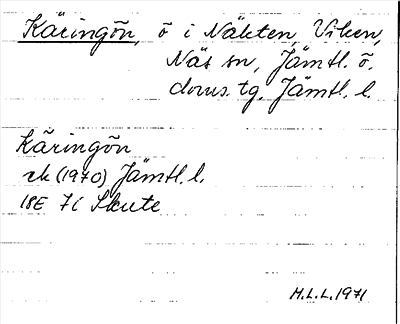 Käringön, ö i Näkten, Viken,
Näs sn, Jämtl. ö.
doms. tg. Jämtl. l.
Käringön
rk (1970) Jämtl. l.
18E 7i Skute
H.L.L. 1971